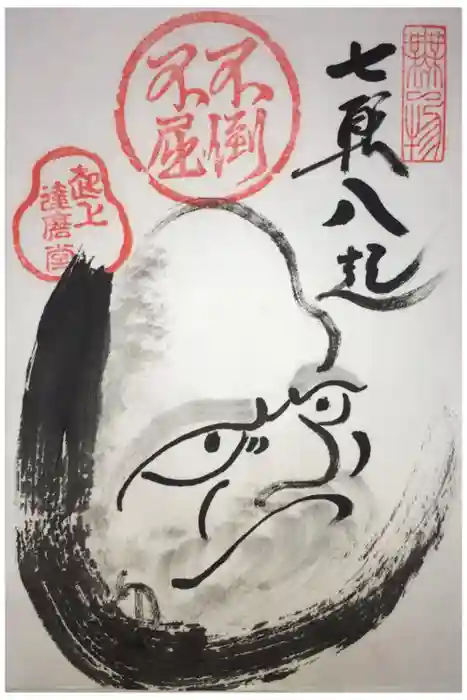 七転八起
不倒
不屈
起上
達磨堂
無一物